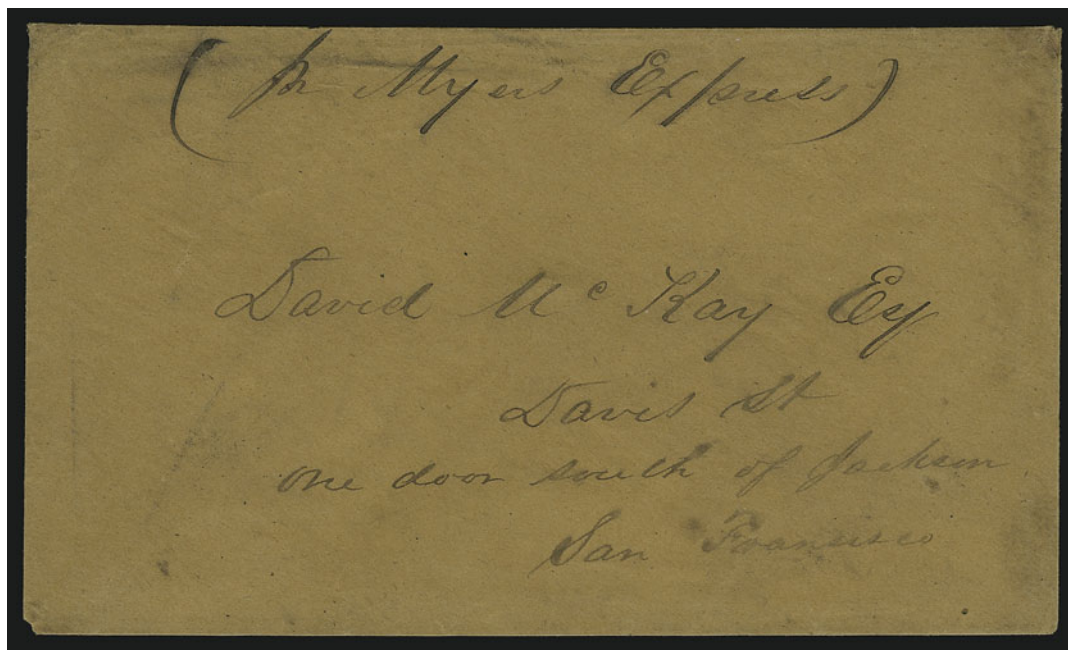 (pr Myers Express)
David Mc Kay Esq
Davis St
One door south of Jackson
San Francisco